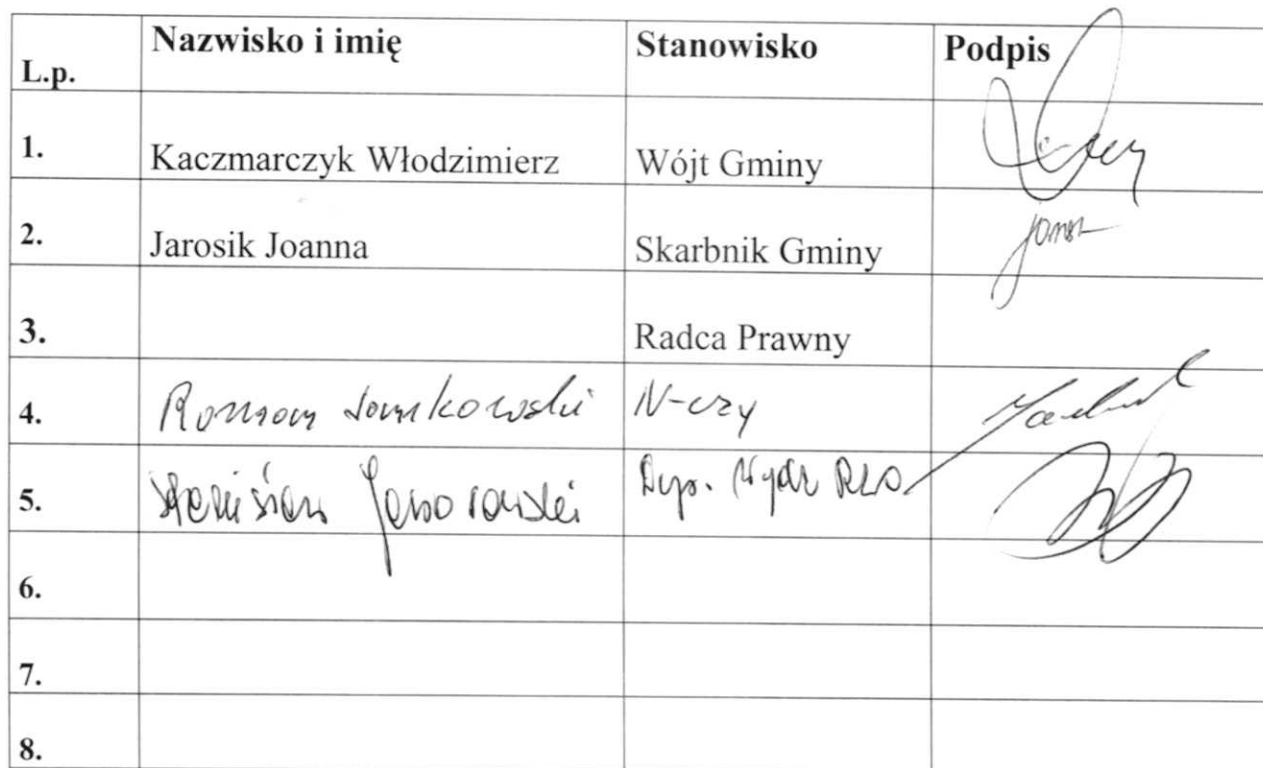 L.p. Nazwisko i imię Stanowisko Podpis
1. Kaczmarczyk Włodzimierz Wójt Gminy
2. Jarosik Joanna Skarbnik Gminy
3. Radca Prawny
4. Roman
5. Stanisław Jaworski
6.
7.
8.